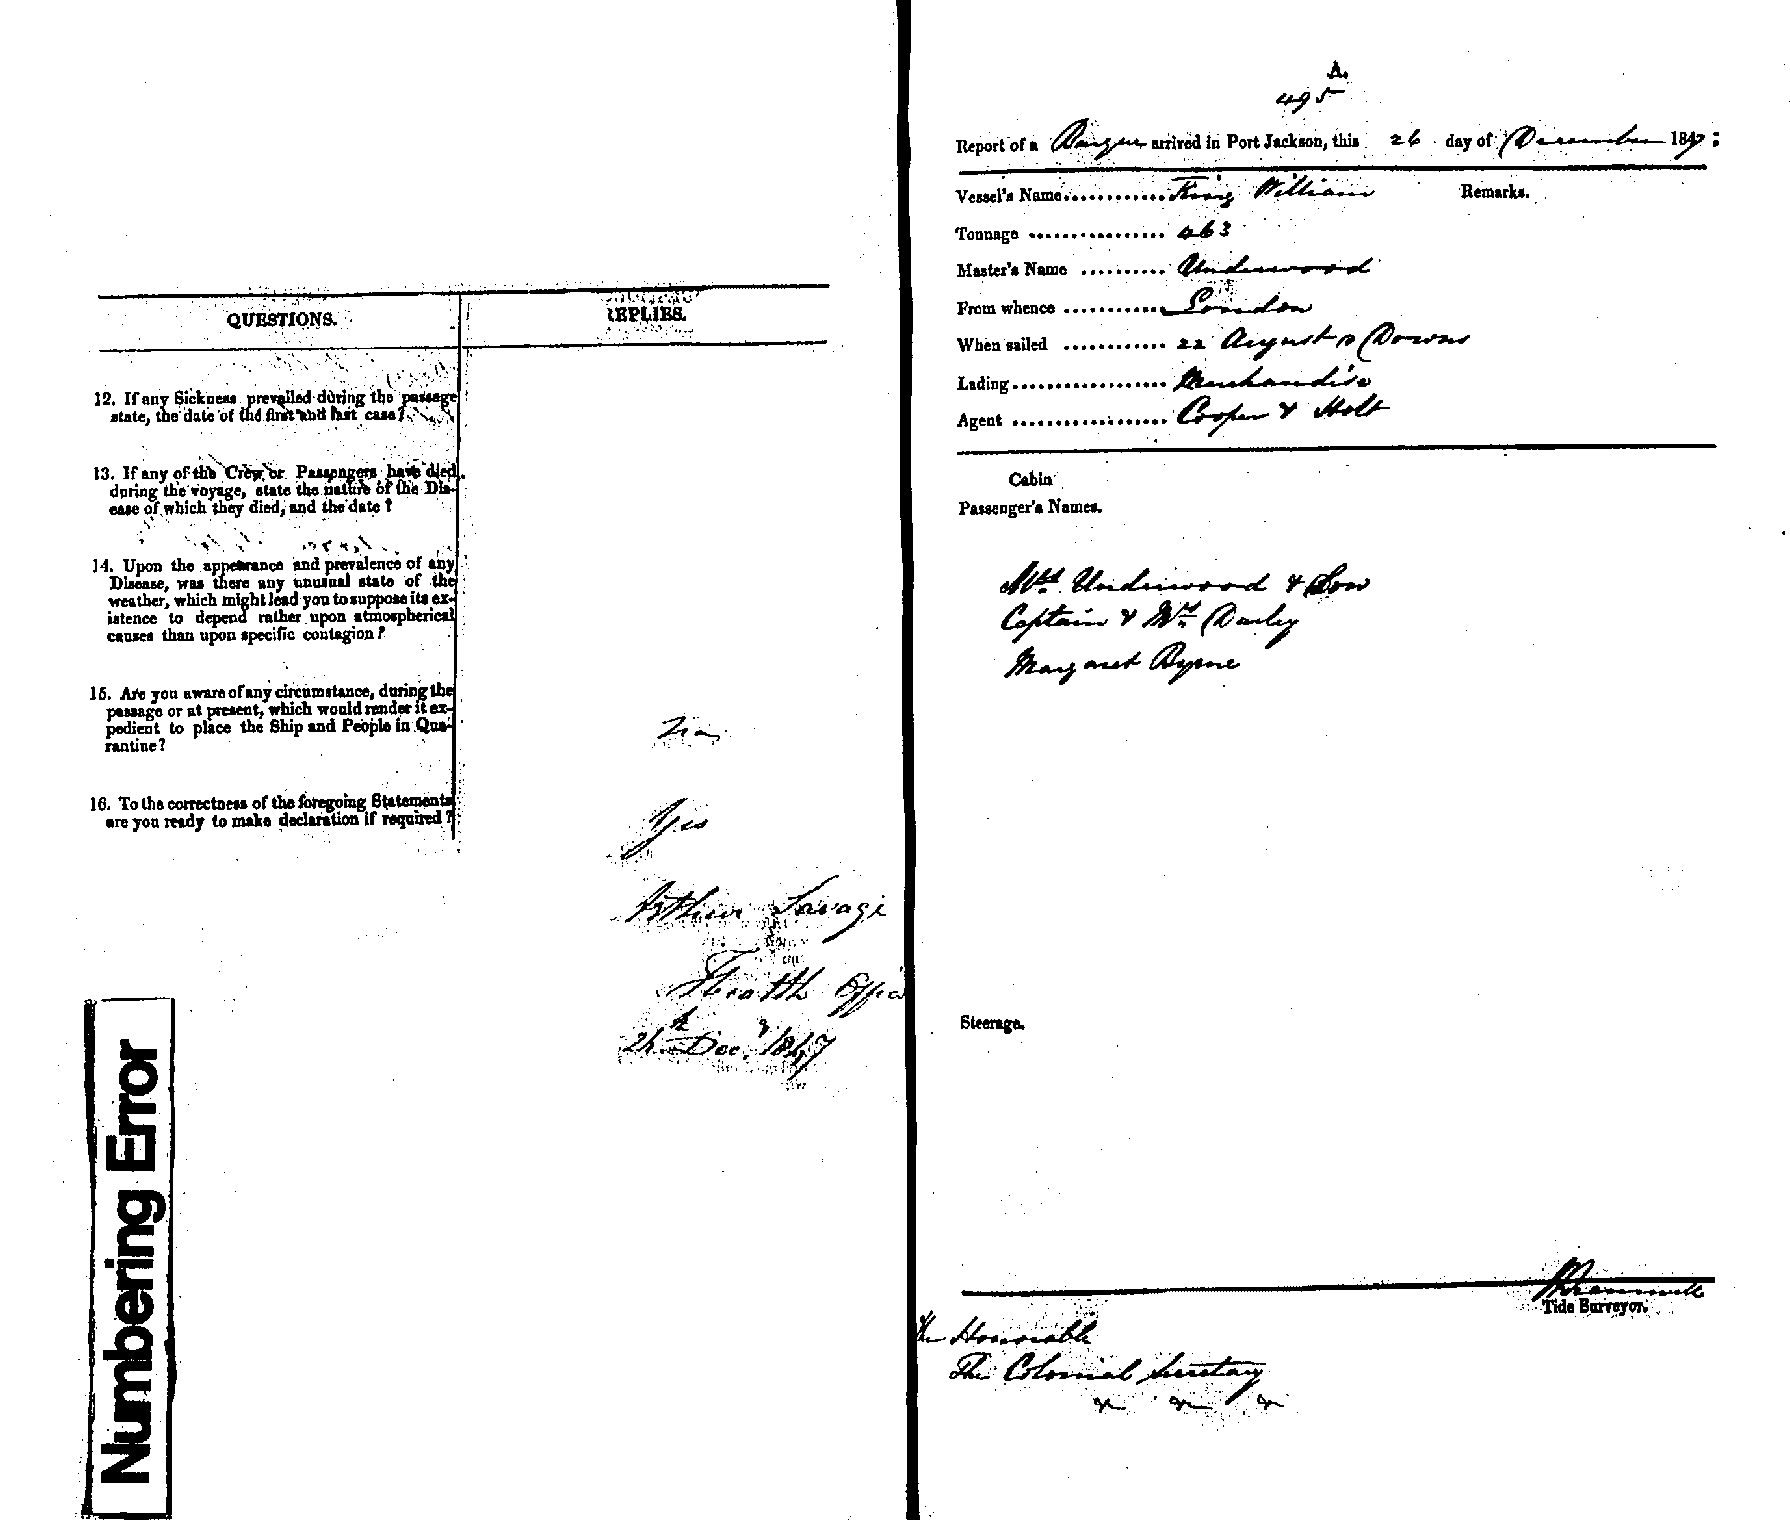 QUESTIONS. REPLIES.
12. If any Sickness prevailed during the passage
state, the date of the first and last case?
13. If any of the Crew or Passengers have died
during the voyage, state the nature of the Dis-
ease of which they died, and the date?
14. Upon the appearance and prevalence of any
Disease, was there any unusual state of the
weather, which might lead you to suppose its ex-
istence to depend rather upon atmospherical
causes than upon specific contagion?
15. Are you aware of any circumstance, during the
passage or at present, which would render it ex-
pedient to place the Ship and People in Qua-
rantine?
16. To the correctness of the foregoing Statements
are you ready to make declaration if required?
Yes
Arthur Savage
Health
Decr 1847
Numbering Error
A.
495
Report of a Barque arrived in Port Jackson, this 26 day of December 1847:
Vessel's Name............King William Remarks.
Tonnage ................ 463
Master's Name .......... Underwood
From whence ............London
When sailed ............ 22 August Downs
Lading................... Merchandise
Agent ................... Cooper & Holt
Cabin
Passenger's Names.
Mrs Underwood & Son
Captain & Mrs Darley
Margaret Byrne
Steerage.
Tide Surveyor.
The Honorable
The Colonial Secretary